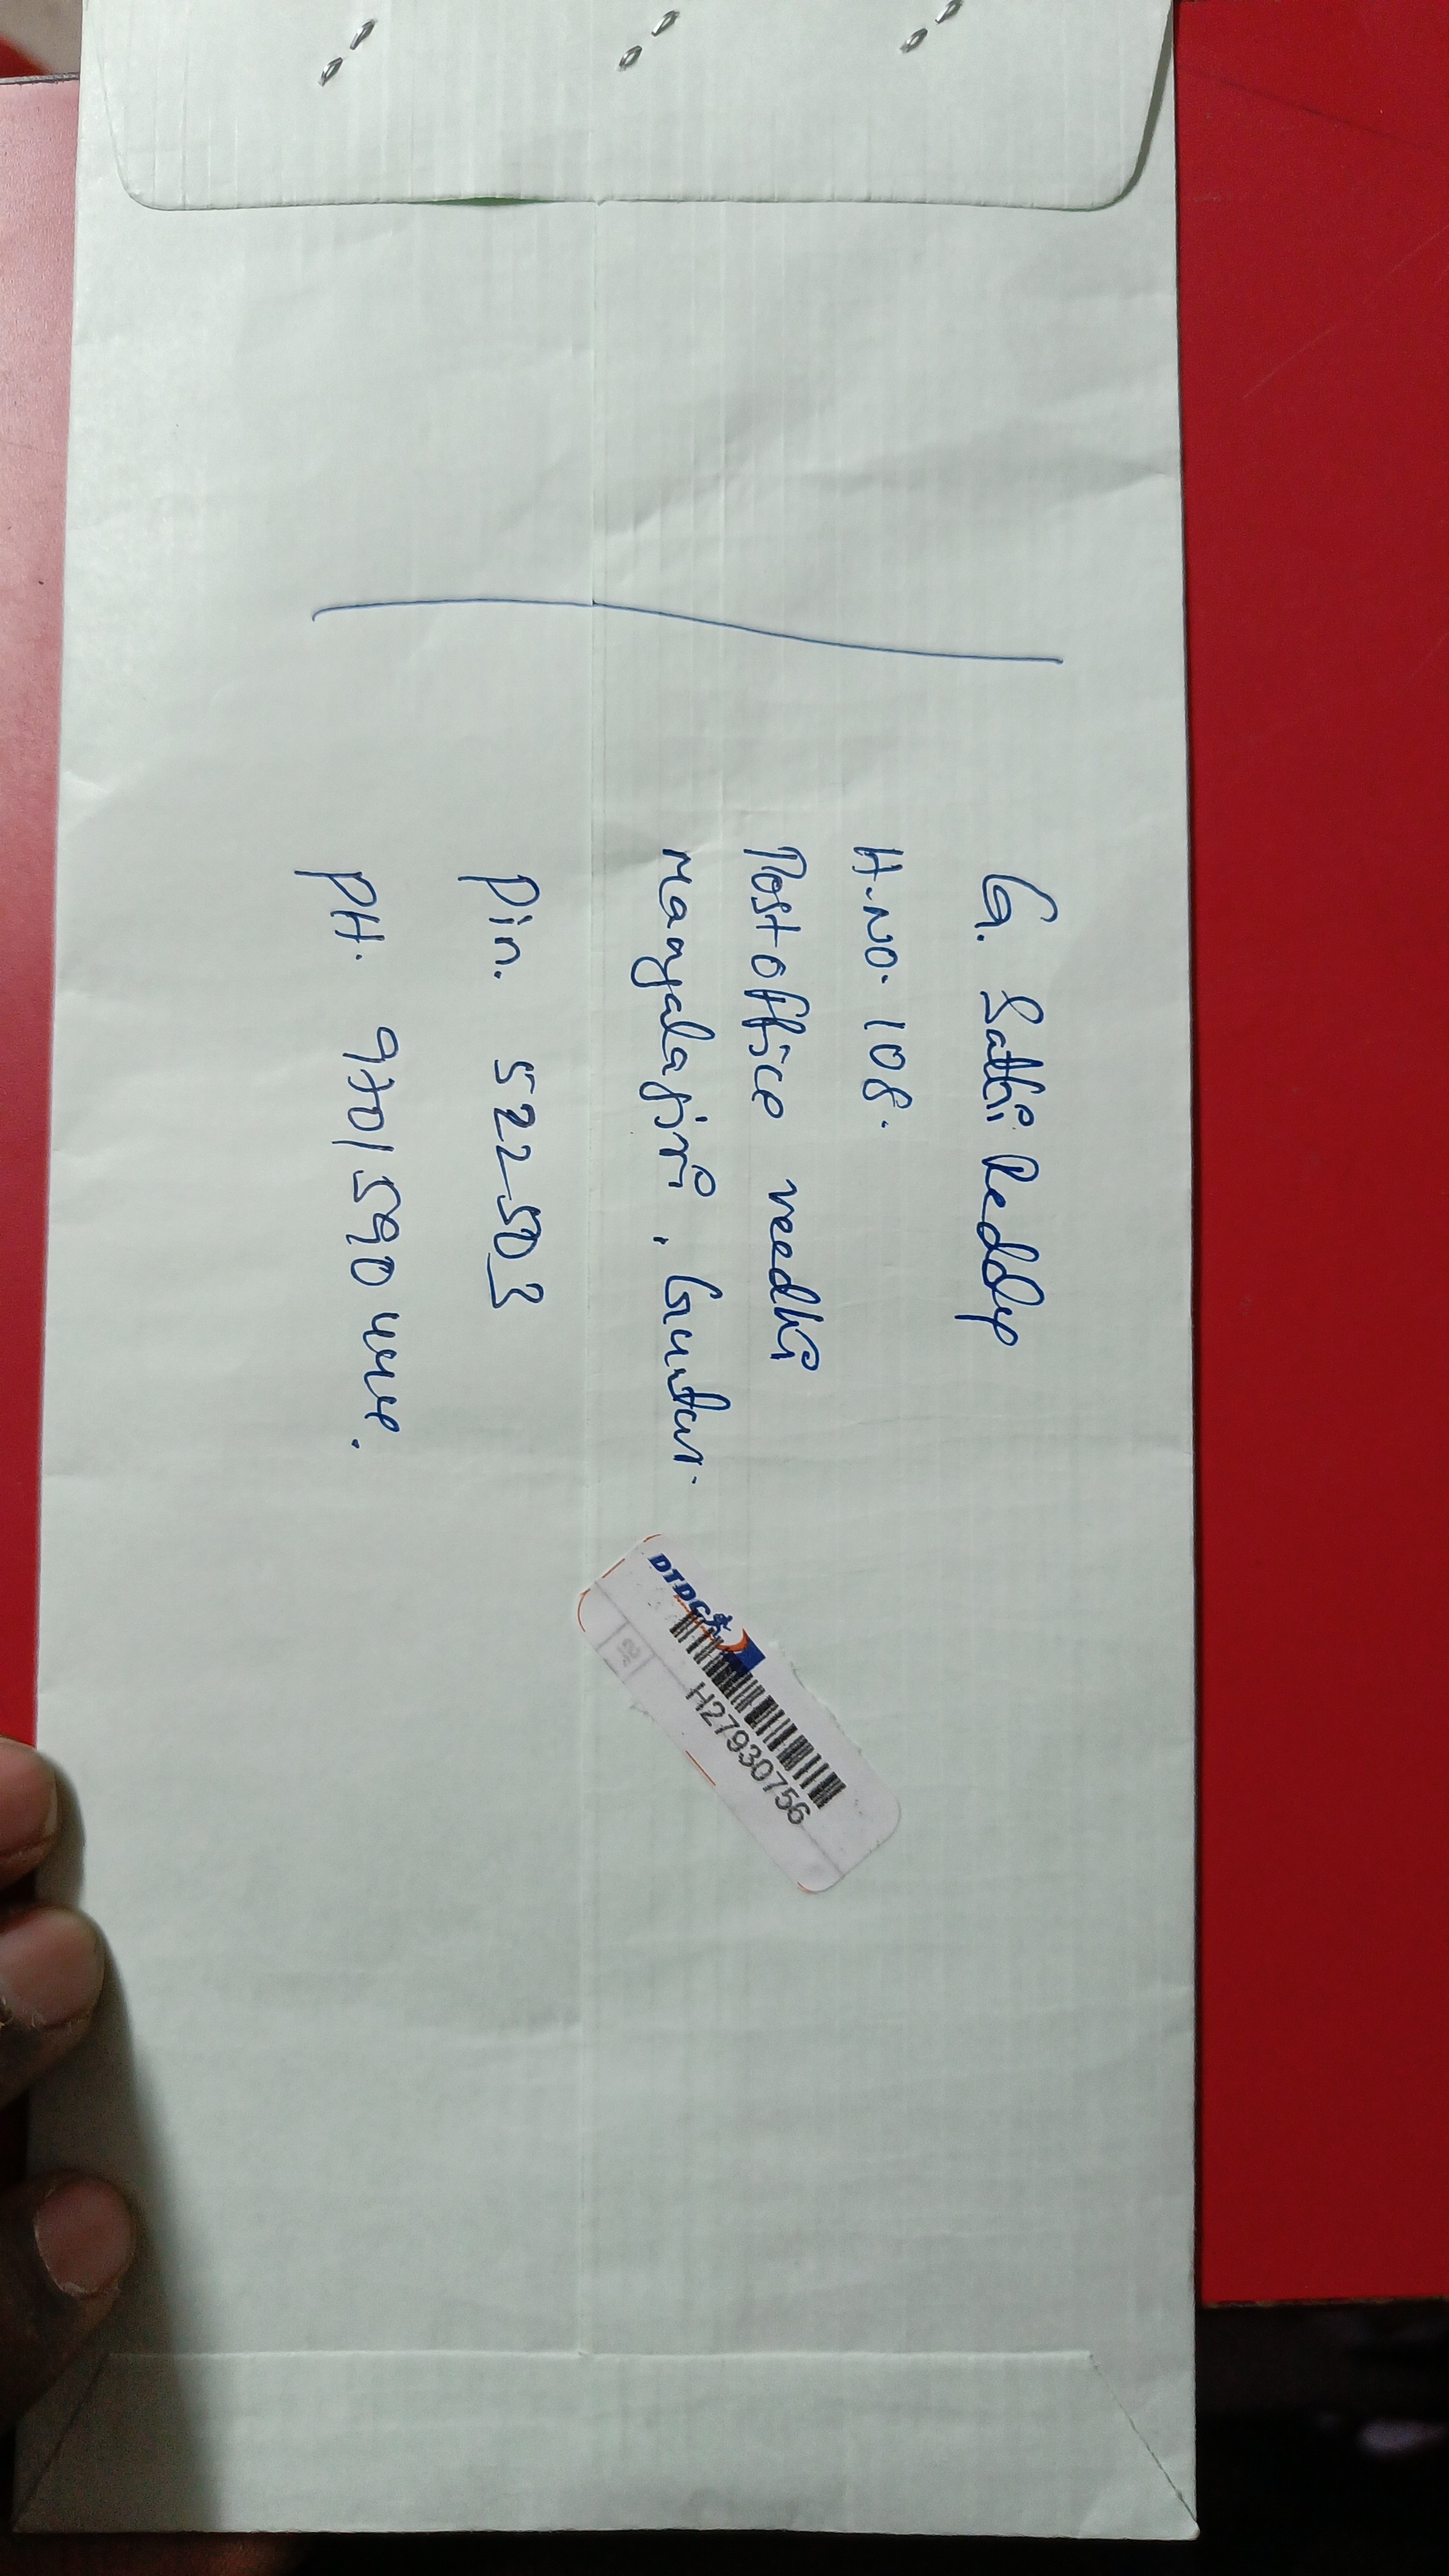 G. Sathi Reddy
H-NO. 108.
Post office veedhi
Mangalagiri, Guntur.
Pin. 522503
PH. 9701590444.
DTDC
H27930756